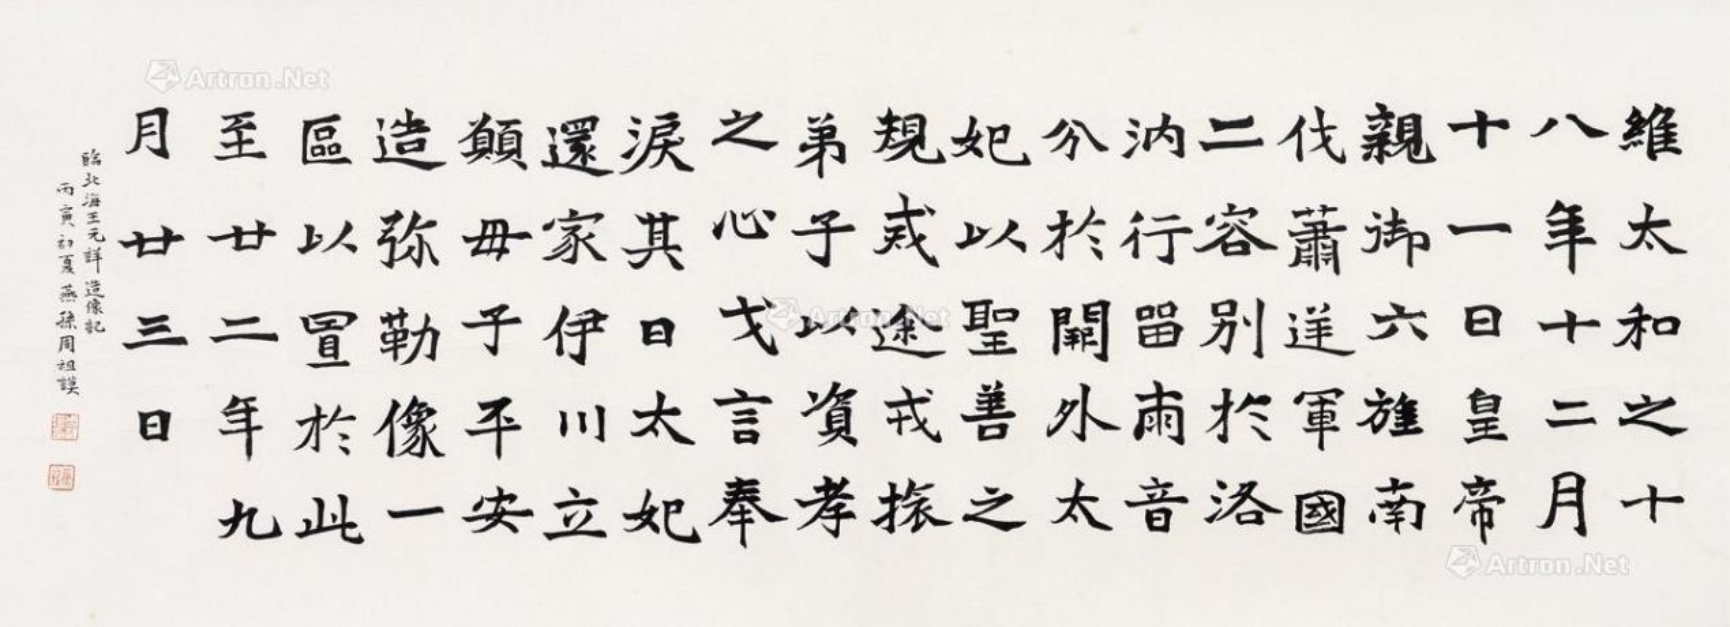 維太和之十
八年十二月
十一日皇帝
親御六旌南
伐蕭逆軍國
二容別於洛
汭行留兩音
分於闈外太
妃以聖善之
規戎途戎振
弟子以資孝
之心戈言奉
淚其日太妃
還家伊川立
願毋子平安
造弥勒像一
區以置於此
至廿二年九
月廿三日
臨北海王元詳造像記
丙寅初夏燕孫周祖謨
Artron.Net
Artron.Net
Artron.Net